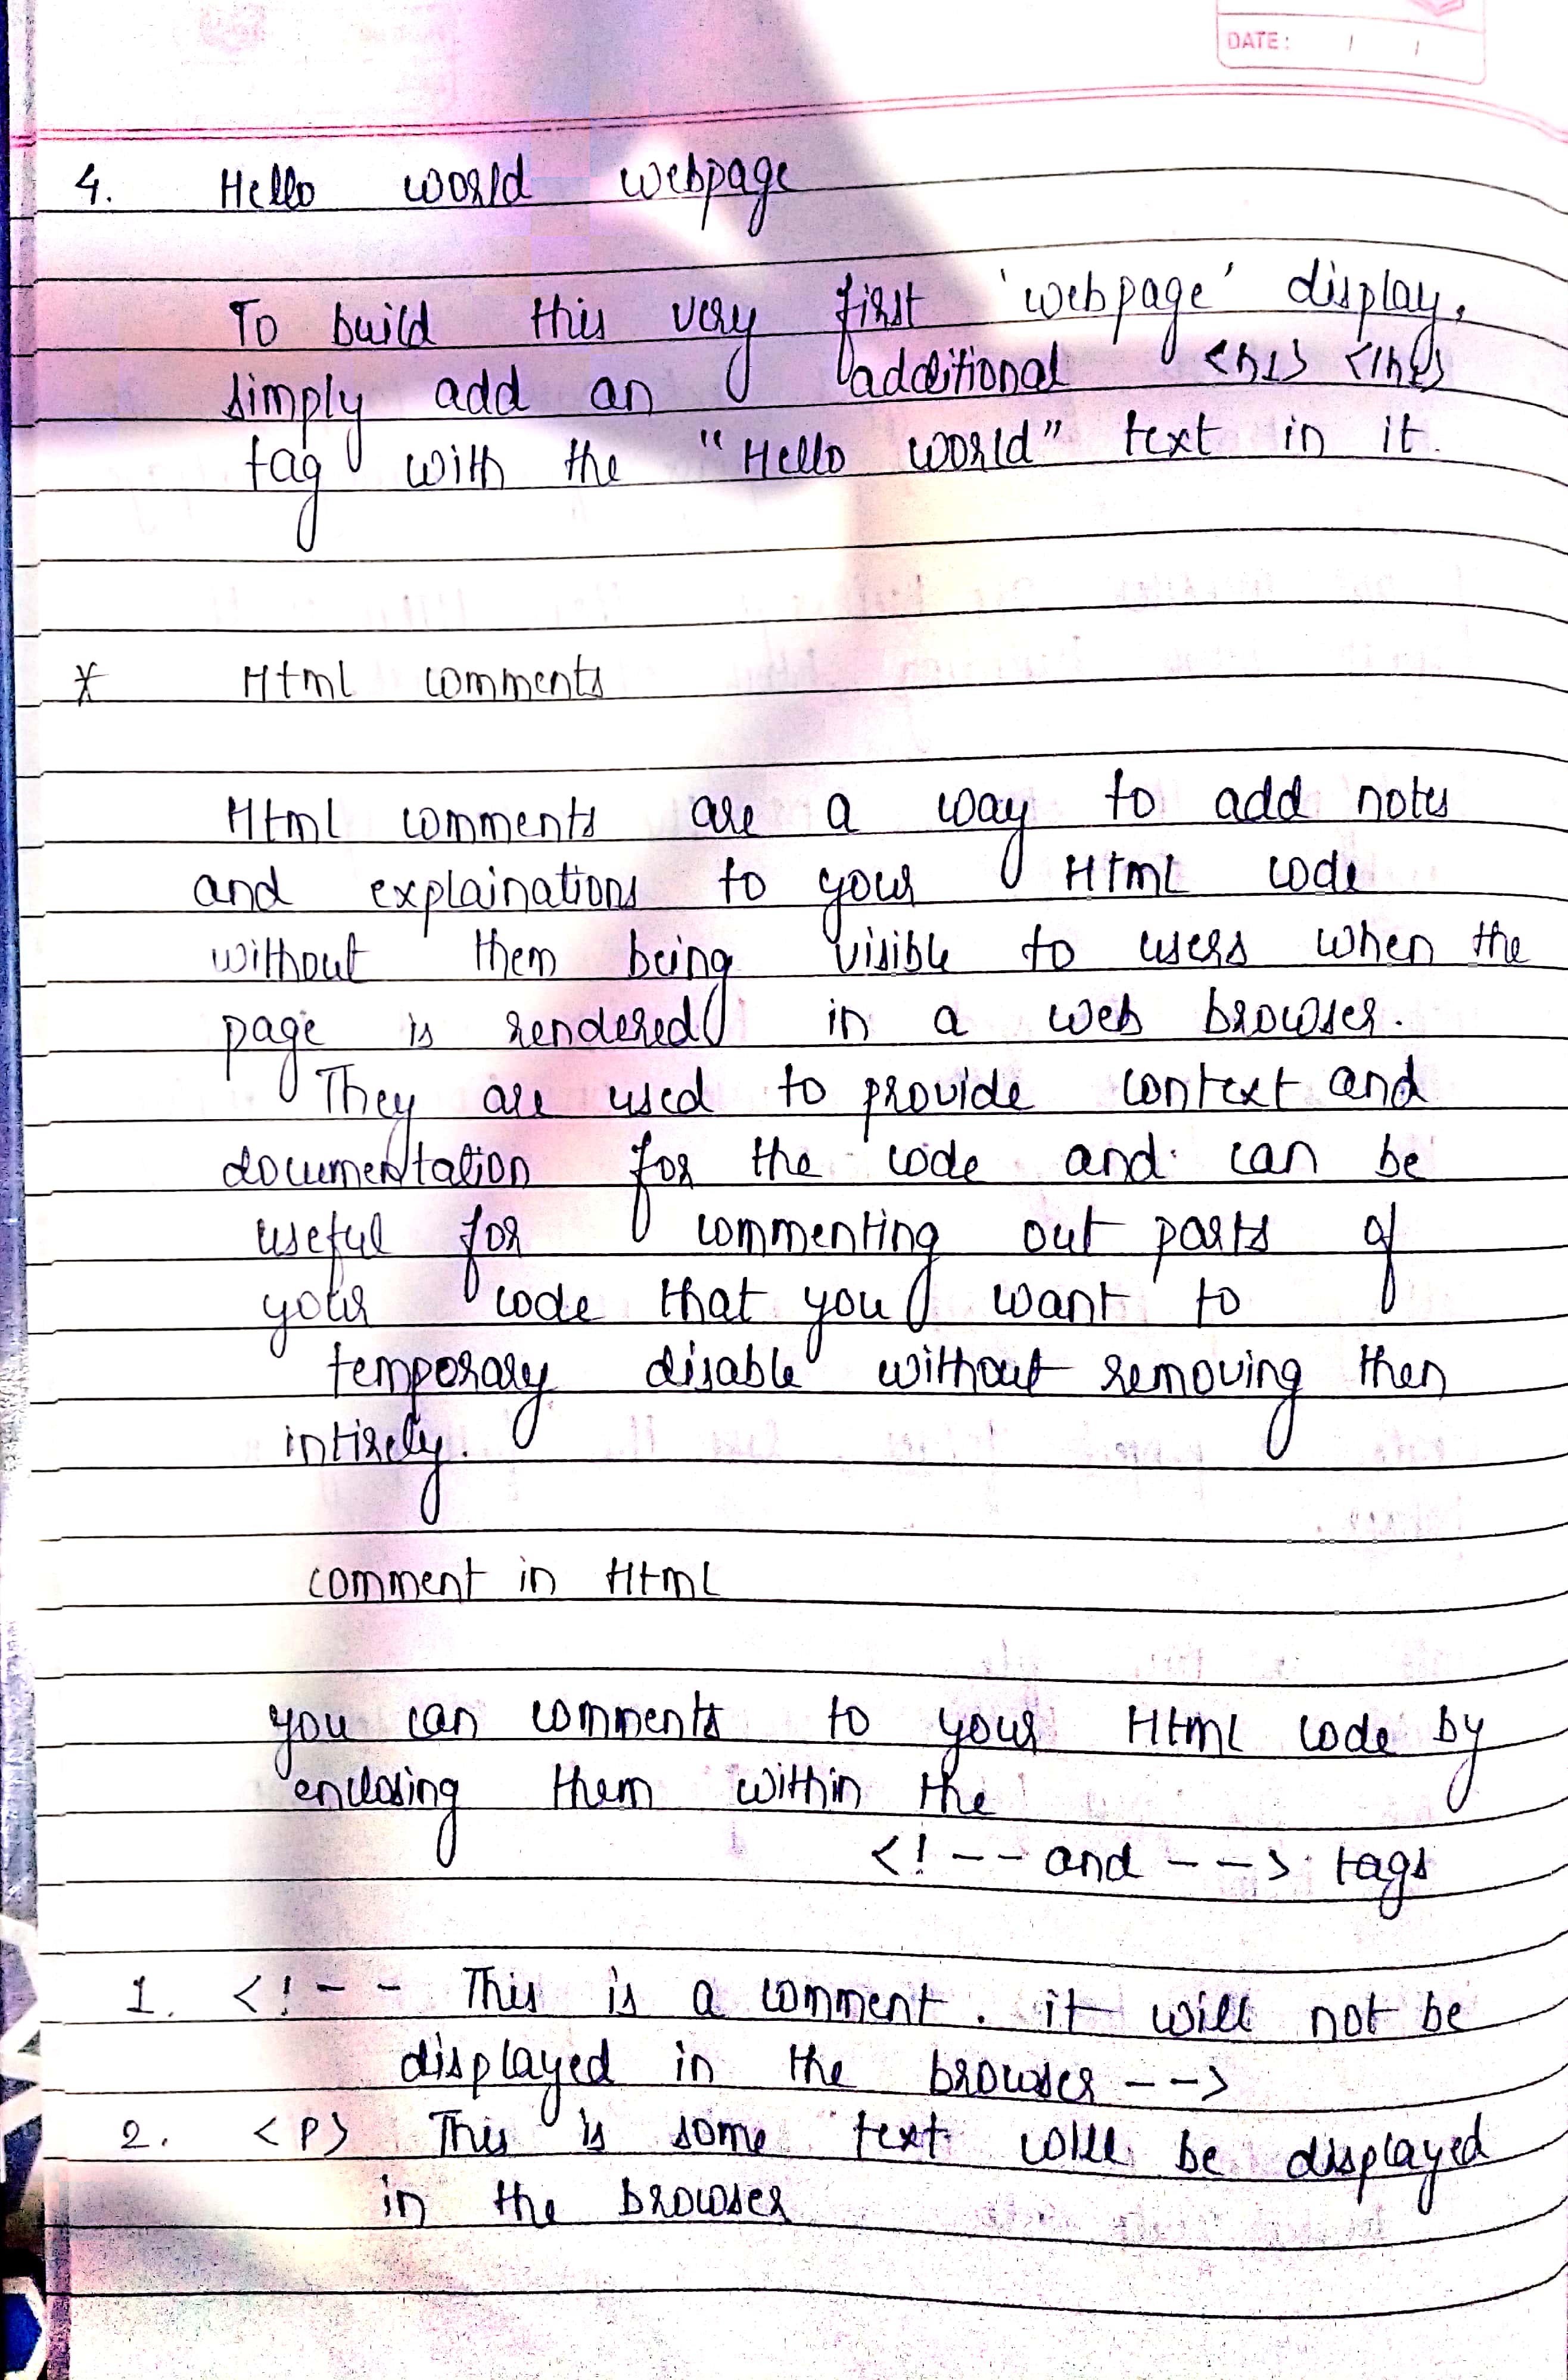 DATE: / /
4. Hello world webpage
To build this very first 'webpage' display,
simply add an additional <h1> </h1>
tag with the "Hello world" text in it.
* Html comments
Html comments are a way to add notes
and explainations to your Html code
without them being visible to users when the
page is rendered in a web browser.
They are used to provide context and
documentation for the code and can be
useful for commenting out parts of
your code that you want to
temporary disable without removing then
intirely.
comment in Html
you can comments to your Html code by
enclosing them within the
<!-- and --> tags
1. <!-- This is a comment. it will not be
displayed in the browser -->
2. <P> This is some text will be displayed
in the browser